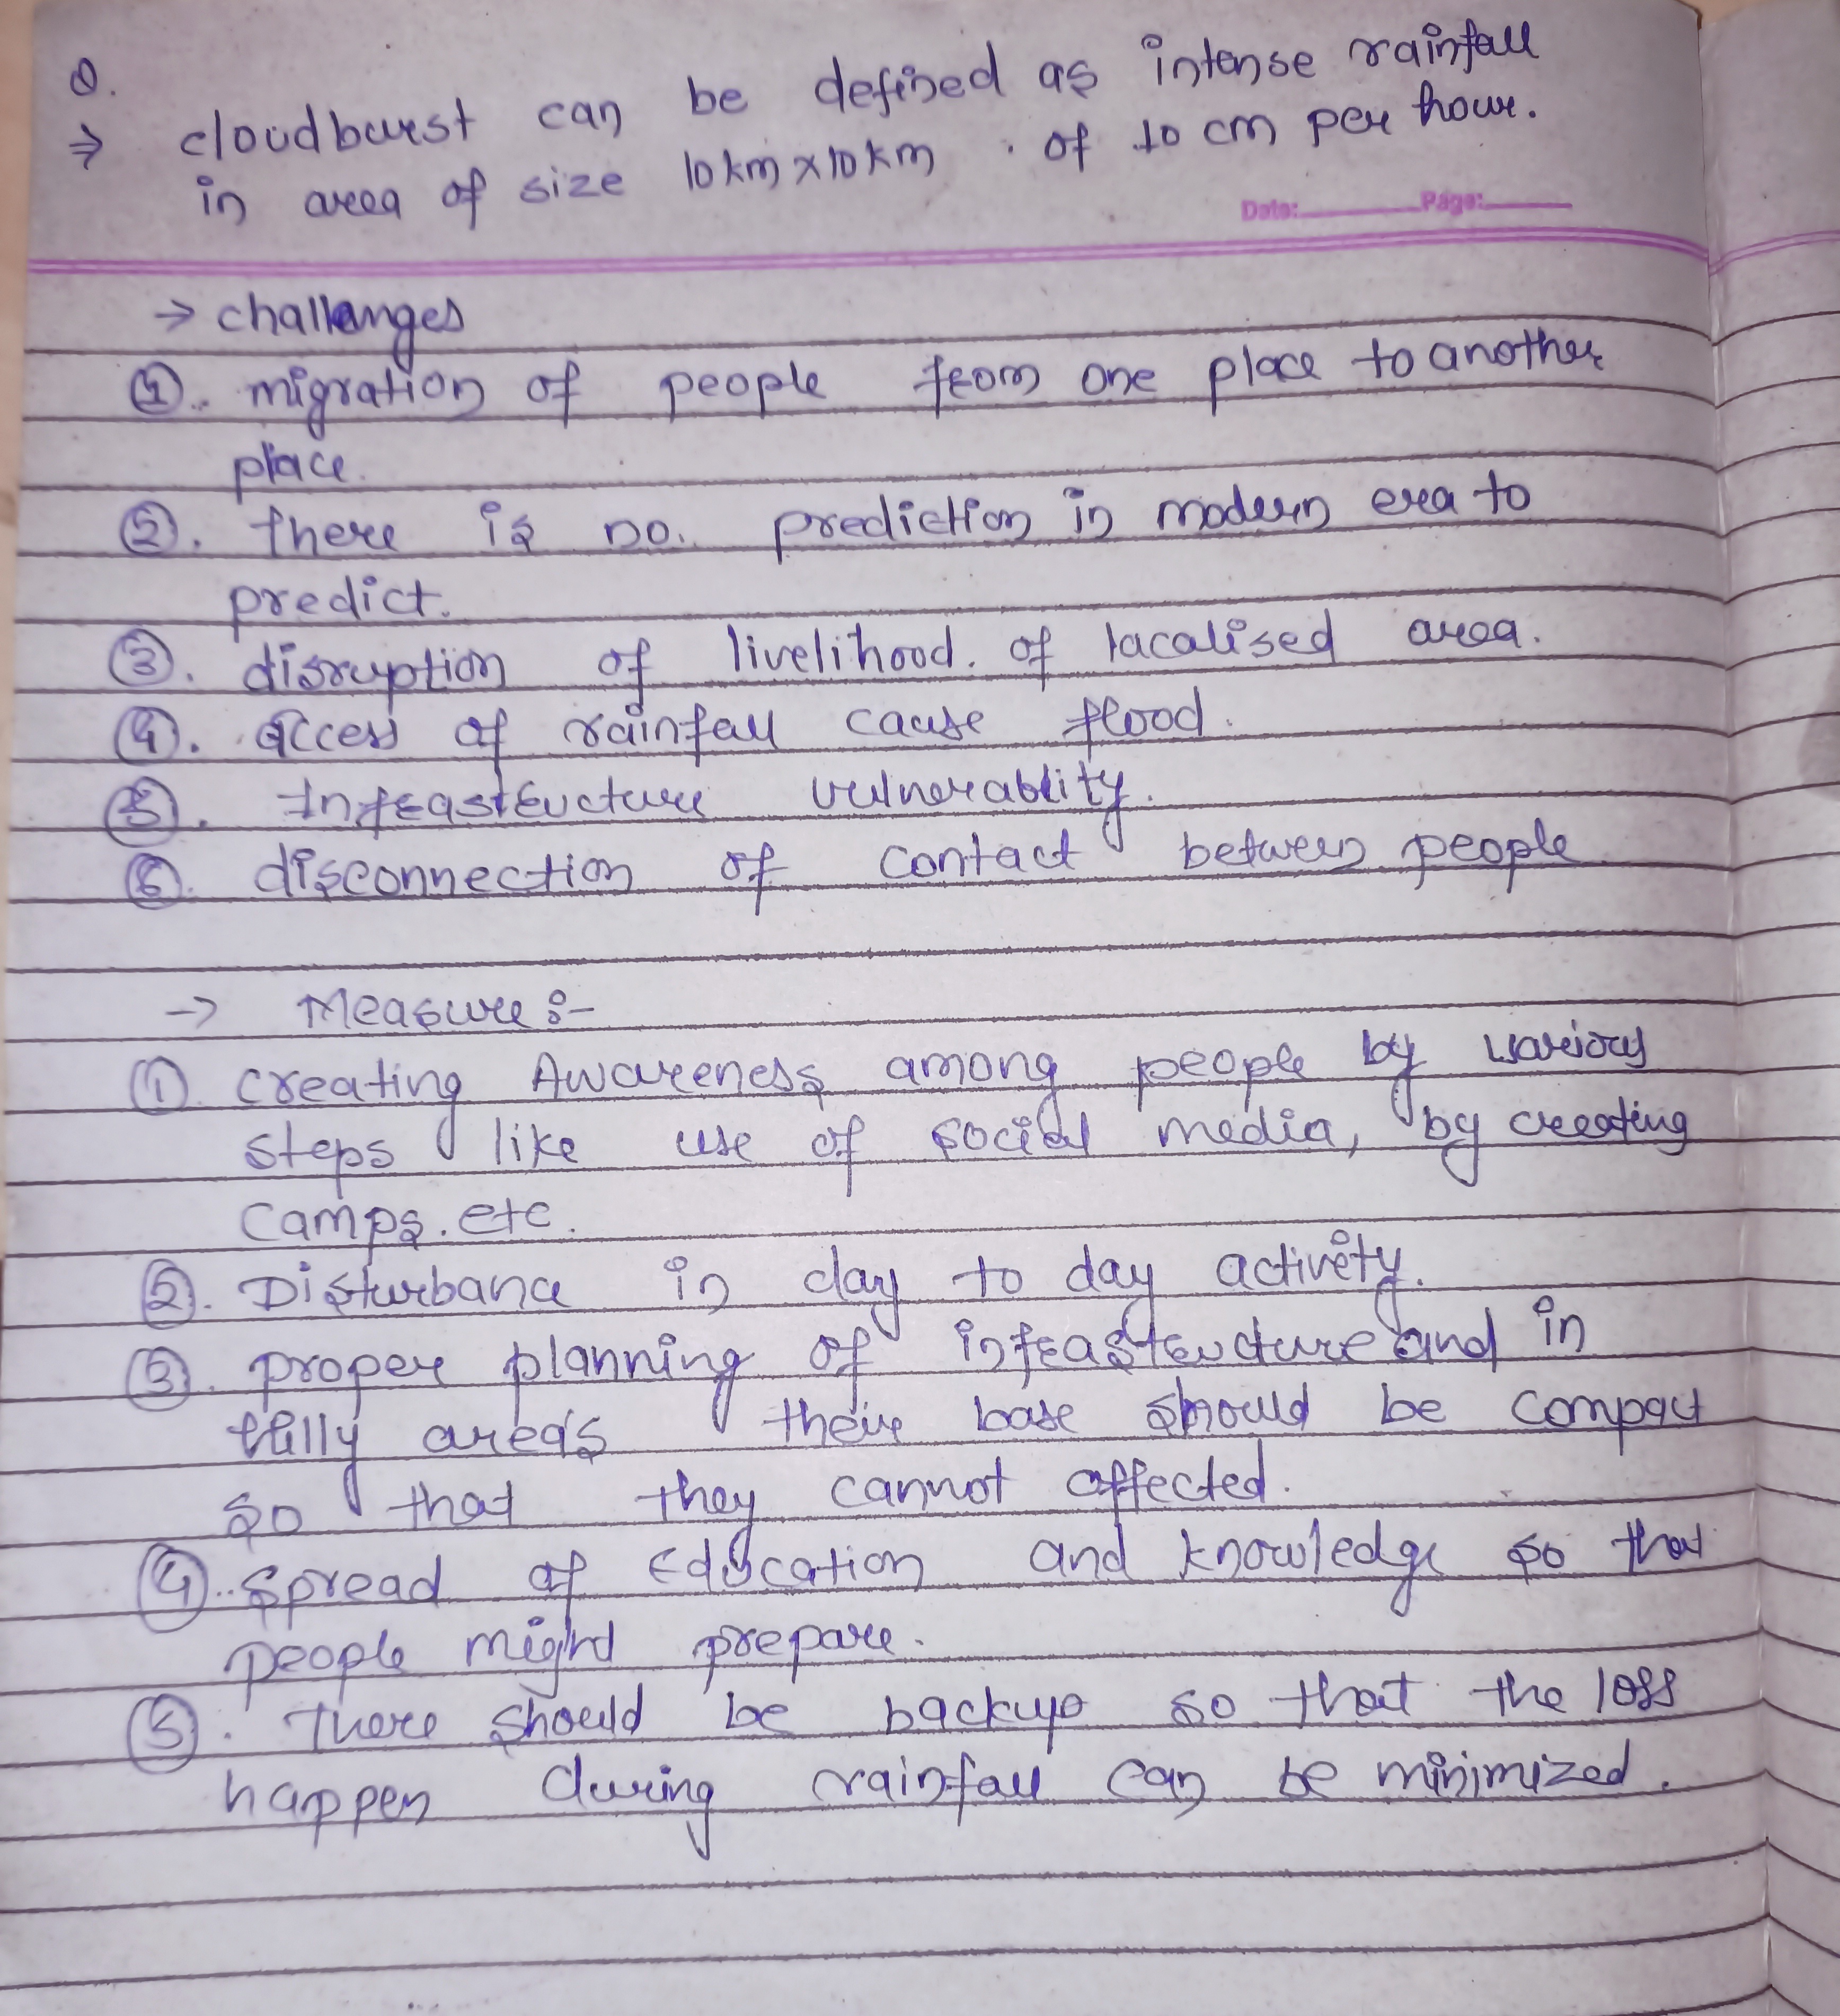 Q.
⇒ cloudburst can be defined as intense rainfall
in area of size 10km×10km . of 10 cm per hour.
Date: Page:
→ challenges
①. migration of people from one place to another
place.
②. there is no. prediction in modern era to
predict.
③. disruption of livelihood. of lacalised area.
④. access of rainfall cause flood.
⑤. Infrastructure vulnerablity.
⑥. disconnection of contact between people
→ Measure :-
① creating Awareness among people by various
steps like use of social media, by creating
camps. etc.
②. Disturbance in day to day activity.
③. proper planning of infrastructure and in
hilly area's their base should be compact
so that they cannot affected.
④.. spread of Education and knowledge so that
people might prepare.
⑤. There should be backup so that the loss
happen during rainfall can be minimized.